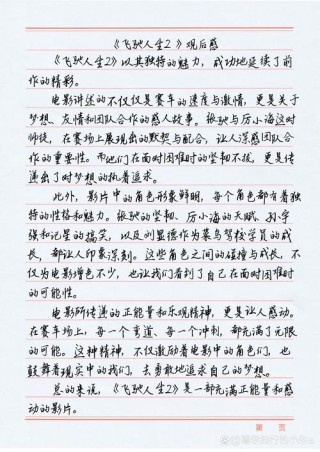 《飞驰人生2》观后感
《飞驰人生2》以其独特的魅力，成功地延续了前
作的精彩。
电影讲述的不仅仅是赛车的速度与激情，更是关于
梦想、友情和团队合作的感人故事。张驰与厉小海这对
师徒，在赛场上展现出的默契与配合，让人深感团队合
作的重要性。而他们在面对困难时的坚韧不拔，更是传
递出了对梦想的执着追求。
此外，影片中的角色形象鲜明，每个角色都有着独
特的性格和魅力。张驰的坚韧、厉小海的天赋、孙宇
强和记星的搞笑，以及刘显德作为菜鸟驾校学员的成
长，都让人印象深刻。这些角色之间的碰撞与成长，不
仅为电影增色不少，也让我们看到了自己在面对困难时
的可能性。
电影所传递的正能量和乐观精神，更是让人感动。
在赛车场上，每一个弯道、每一个冲刺，都充满了无限
的可能。这种精神，不仅激励着电影中的角色们，也
鼓舞着现实中的我们，去勇敢地追求自己的梦想。
总的来说，《飞驰人生2》是一部充满正能量和感
动的影片。
第 页